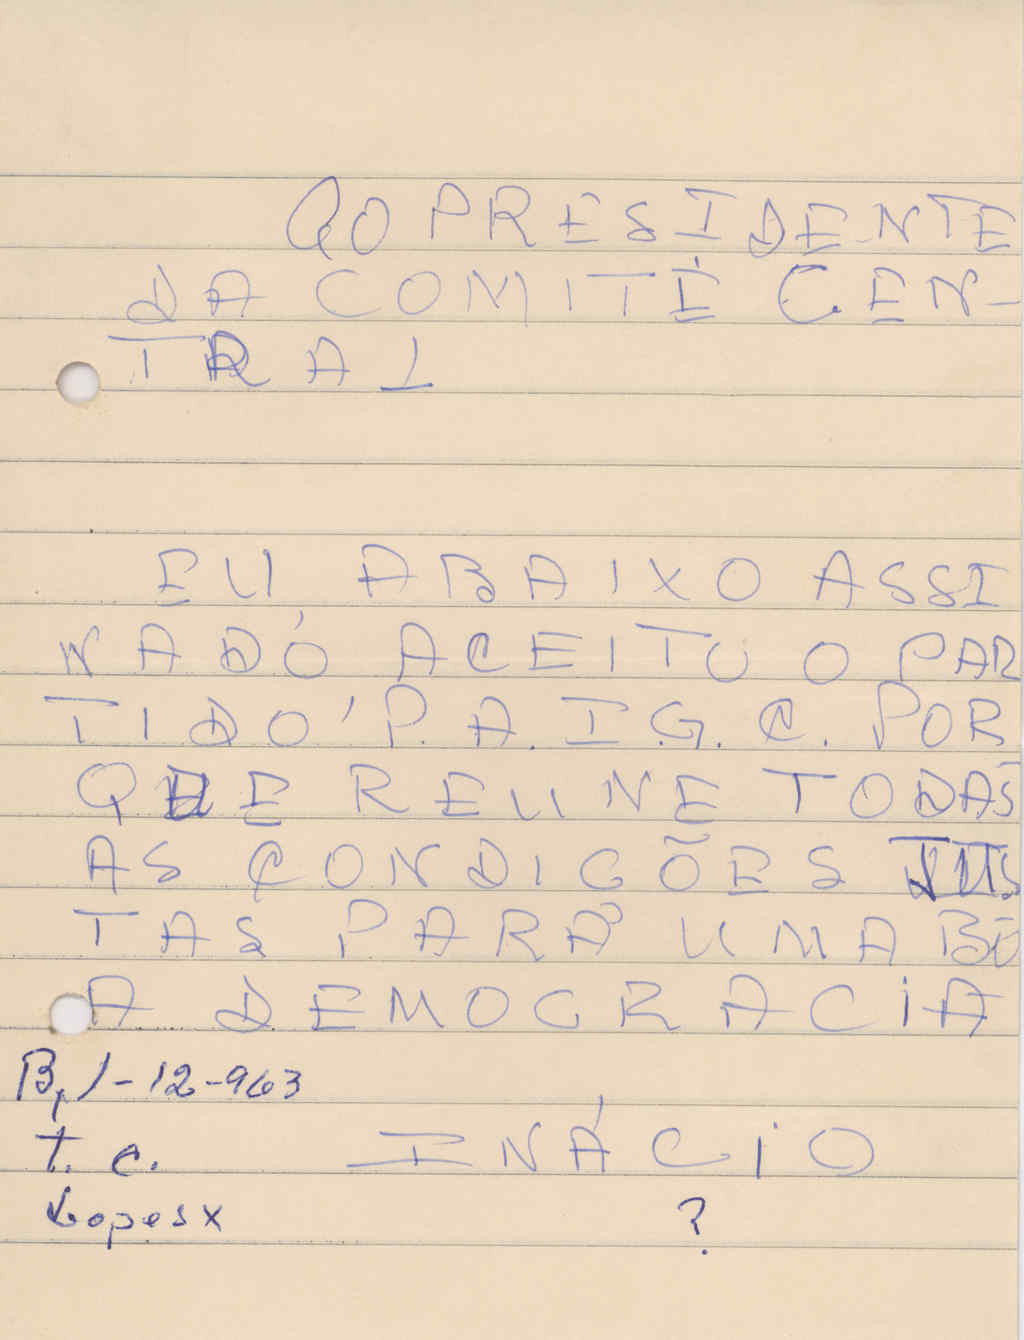 AO PRESIDENTE
DA COMITÉ CEN-
TRAL
EU ABAIXO ASSI
NADÓ ACEITO O PAR
TIDO' P.A.I.G.C. POR
QUE REUNE TODAS
AS CONDIGÕES JUS
TAS PARA UMA BO
A DEMOGRACIA
B, 1-12-963
T. C. INÁCIO
Lopes x ?